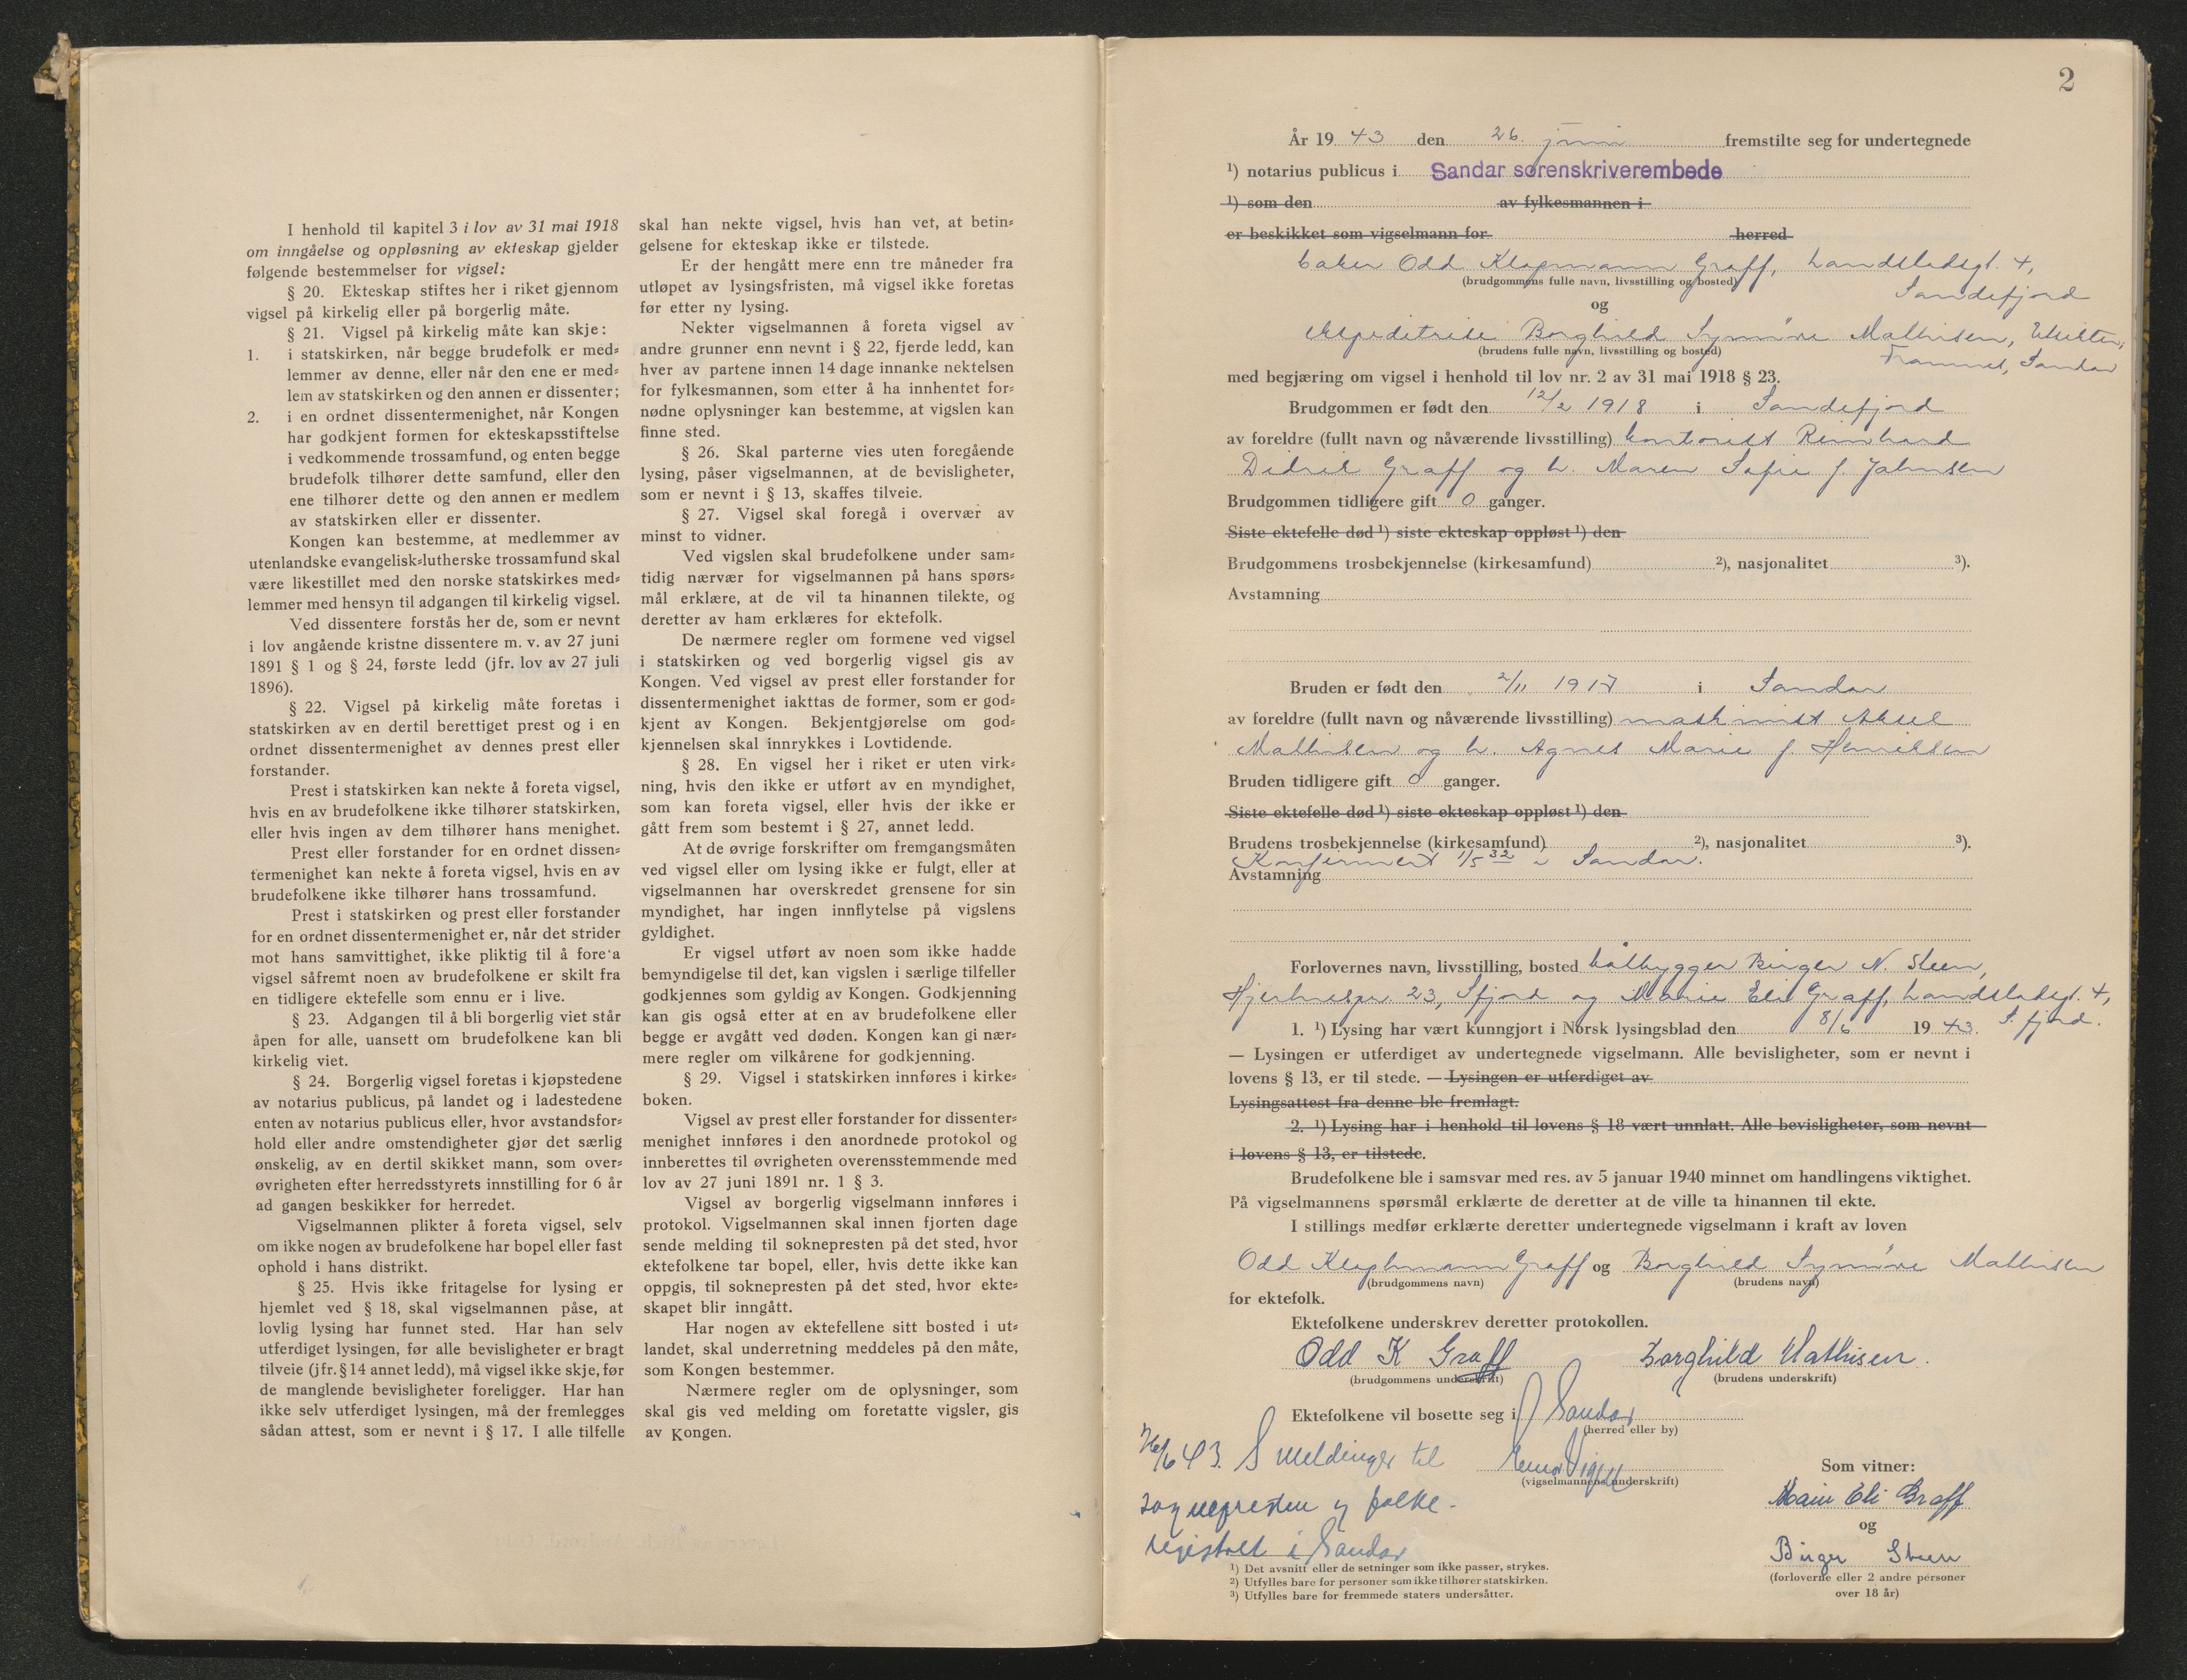 I henhold til kapitel 3 i lov av 31 mai 1918
om inngåelse og oppløsning av ekteskap gjelder
følgende bestemmelser for vigsel:
§ 20. Ekteskap stiftes her i riket gjennom
vigsel på kirkelig eller på borgerlig måte.
§ 21. Vigsel på kirkelig måte kan skje:
1. i statskirken, når begge brudefolk er med-
lemmer av denne, eller når den ene er med-
lem av statskirken og den annen er dissenter;
2. i en ordnet dissentermenighet, når Kongen
har godkjent formen for ekteskapsstiftelse
i vedkommende trossamfund, og enten begge
brudefolk tilhører dette samfund, eller den
ene tilhører dette og den annen er medlem
av statskirken eller er dissenter.
Kongen kan bestemme, at medlemmer av
utenlandske evangelisk-lutherske trossamfund skal
være likestillet med den norske statskirkes med-
lemmer med hensyn til adgangen til kirkelig vigsel.
Ved dissentere forstås her de, som er nevnt
i lov angående kristne dissentere m. v. av 27 juni
1891 § 1 og § 24, første ledd (jfr. lov av 27 juli
1896).
§ 22. Vigsel på kirkelig måte foretas i
statskirken av en dertil berettiget prest og i en
ordnet dissentermenighet av dennes prest eller
forstander.
Prest i statskirken kan nekte å foreta vigsel,
hvis en av brudefolkene ikke tilhører statskirken,
eller hvis ingen av dem tilhører hans menighet.
Prest eller forstander for en ordnet dissen-
termenighet kan nekte å foreta vigsel, hvis en av
brudefolkene ikke tilhører hans trossamfund.
Prest i statskirken og prest eller forstander
for en ordnet dissentermenighet er, når det strider
mot hans samvittighet, ikke pliktig til å fore'a
vigsel såfremt noen av brudefolkene er skilt fra
en tidligere ektefelle som ennu er i live.
§ 23. Adgangen til å bli borgerlig viet står
åpen for alle, uansett om brudefolkene kan bli
kirkelig viet.
§ 24. Borgerlig vigsel foretas i kjøpstedene
av notarius publicus, på landet og i ladestedene
enten av notarius publicus eller, hvor avstandsfor-
hold eller andre omstendigheter gjør det særlig
ønskelig, av en dertil skikket mann, som over-
øvrigheten efter herredsstyrets innstilling for 6 år
ad gangen beskikker for herredet.
Vigselmannen plikter å foreta vigsel, selv
om ikke nogen av brudefolkene har bopel eller fast
ophold i hans distrikt.
§ 25. Hvis ikke fritagelse for lysing er
hjemlet ved § 18, skal vigselmannen påse, at
lovlig lysing har funnet sted. Har han selv
utferdiget lysingen, før alle bevisligheter er bragt
tilveie (jfr. § 14 annet ledd), må vigsel ikke skje, før
de manglende bevisligheter foreligger. Har han
ikke selv utferdiget lysingen, må der fremlegges
sådan attest, som er nevnt i § 17. I alle tilfelle
skal han nekte vigsel, hvis han vet, at betin-
gelsene for ekteskap ikke er tilstede.
Er der hengått mere enn tre måneder fra
utløpet av lysingsfristen, må vigsel ikke foretas
før etter ny lysing.
Nekter vigselmannen å foreta vigsel av
andre grunner enn nevnt i § 22, fjerde ledd, kan
hver av partene innen 14 dage innanke nektelsen
for fylkesmannen, som etter å ha innhentet for-
nødne oplysninger kan bestemme, at vigslen kan
finne sted.
§ 26. Skal parterne vies uten foregående
lysing, påser vigselmannen, at de bevisligheter,
som er nevnt i § 13, skaffes tilveie.
§ 27. Vigsel skal foregå i overvær av
minst to vidner.
Ved vigslen skal brudefolkene under sam-
tidig nærvær for vigselmannen på hans spørs-
mål erklære, at de vil ta hinannen tilekte, og
deretter av ham erklæres for ektefolk.
De nærmere regler om formene ved vigsel
i statskirken og ved borgerlig vigsel gis av
Kongen. Ved vigsel av prest eller forstander for
dissentermenighet iakttas de former, som er god-
kjent av Kongen. Bekjentgjørelse om god-
kjennelsen skal innrykkes i Lovtidende.
§ 28. En vigsel her i riket er uten virk-
ning, hvis den ikke er utført av en myndighet,
som kan foreta vigsel, eller hvis der ikke er
gått frem som bestemt i § 27, annet ledd.
At de øvrige forskrifter om fremgangsmåten
ved vigsel eller om lysing ikke er fulgt, eller at
vigselmannen har overskredet grensene for sin
myndighet, har ingen innflytelse på vigslens
gyldighet.
Er vigsel utført av noen som ikke hadde
bemyndigelse til det, kan vigslen i særlige tilfeller
godkjennes som gyldig av Kongen. Godkjenning
kan gis også etter at en av brudefolkene eller
begge er avgått ved døden. Kongen kan gi nær-
mere regler om vilkårene for godkjenning.
§ 29. Vigsel i statskirken innføres i kirke-
boken.
Vigsel av prest eller forstander for dissenter-
menighet innføres i den anordnede protokol og
innberettes til øvrigheten overensstemmende med
lov av 27 juni 1891 nr. 1 § 3.
Vigsel av borgerlig vigselmann innføres i
protokol. Vigselmannen skal innen fjorten dage
sende melding til soknepresten på det sted, hvor
ektefolkene tar bopel, eller, hvis dette ikke kan
oppgis, til soknepresten på det sted, hvor ekte-
skapet blir inngått.
Har nogen av ektefellene sitt bosted i ut-
landet, skal underretning meddeles på den måte,
som Kongen bestemmer.
Nærmere regler om de oplysninger, som
skal gis ved melding om foretatte vigsler, gis
av Kongen.
2
År 19 43 den 26. juni fremstilte seg for undertegnede
¹) notarius publicus i Sandar sorenskriverembede
¹) som den av fylkesmannen i
er beskikket som vigselmann for herred
baker Odd Klopmann Graff, Landstadsgt. 4,
(brudgommens fulle navn, livsstilling og bosted)
Sandefjord
og
ekspeditrise Borghild Synnöve Mathisen,
(brudens fulle navn, livsstilling og bosted)
Framnes, Sandar
med begjæring om vigsel i henhold til lov nr. 2 av 31 mai 1918 § 23.
Brudgommen er født den 12/2 1918 i Sandefjord
av foreldre (fullt navn og nåværende livsstilling) kontorist Reinhard
Didrik Graff og h. Maren Sofie f. Jahnsen
Brudgommen tidligere gift 0 ganger.
Siste ektefelle død ¹) siste ekteskap oppløst ¹) den
Brudgommens trosbekjennelse (kirkesamfund) ²), nasjonalitet ³).
Avstamning
Bruden er født den 2/11 1917 i Sandar
av foreldre (fullt navn og nåværende livsstilling) maskinist Aksel
Mathisen og h. Agnes Marie f. Henriksen
Bruden tidligere gift 0 ganger.
Siste ektefelle død ¹) siste ekteskap oppløst ¹) den
Brudens trosbekjennelse (kirkesamfund) ²), nasjonalitet ³).
Konfirmert 1/5 32 i Sandar.
Avstamning
Forlovernes navn, livsstilling, bosted båtbygger Birger N. Steen,
Hjertnespr. 23, Sfjord og Marie Eli Graff, Landstadsgt. 4,
S. fjord.
1. ¹) Lysing har vært kunngjort i Norsk lysingsblad den 8/6 19 43.
— Lysingen er utferdiget av undertegnede vigselmann. Alle bevisligheter, som er nevnt i
lovens § 13, er til stede. — Lysingen er utferdiget av
Lysingsattest fra denne ble fremlagt.
2. ¹) Lysing har i henhold til lovens § 18 vært unnlatt. Alle bevisligheter, som nevnt
i lovens § 13, er tilstede.
Brudefolkene ble i samsvar med res. av 5 januar 1940 minnet om handlingens viktighet.
På vigselmannens spørsmål erklærte de deretter at de ville ta hinannen til ekte.
I stillings medfør erklærte deretter undertegnede vigselmann i kraft av loven
Odd Klophmann Graff og Borghild Synnöve Mathisen
(brudgommens navn) (brudens navn)
for ektefolk.
Ektefolkene underskrev deretter protokollen.
Odd K Graff Borghild Mathisen.
(brudgommens underskrift) (brudens underskrift)
Ektefolkene vil bosette seg i Sandar
(herred eller by)
26/6 43. S meldinger til
(vigselmannens underskrift)
sognepresten og folke-
registret i Sandar
Som vitner:
Marie Eli Graff
og
Birger Steen
(forloverne eller 2 andre personer
over 18 år)
¹) Det avsnitt eller de setninger som ikke passer, strykes.
²) Utfylles bare for personer som ikke tilhører statskirken.
³) Utfylles bare for fremmede staters undersåtter.